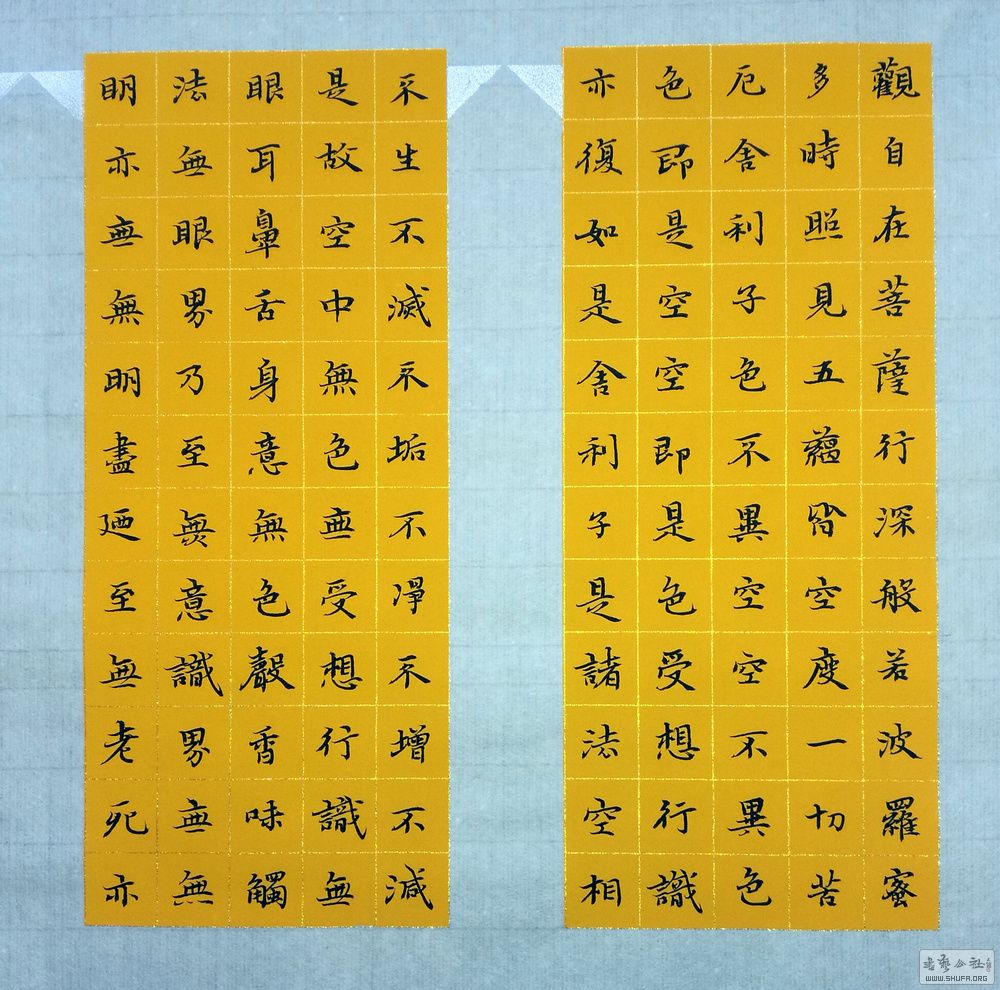 觀自在菩薩行深般若波羅蜜
多時照見五蘊皆空度一切苦
厄舍利子色不異空空不異色
色即是空空即是色受想行識
亦復如是舍利子是諸法空相
不生不滅不垢不淨不增不減
是故空中無色無受想行識無
眼耳鼻舌身意無色聲香味觸
法無眼界乃至無意識界無無
明亦無無明盡廼至無老死亦
書藝公社
WWW.SHUFA.ORG